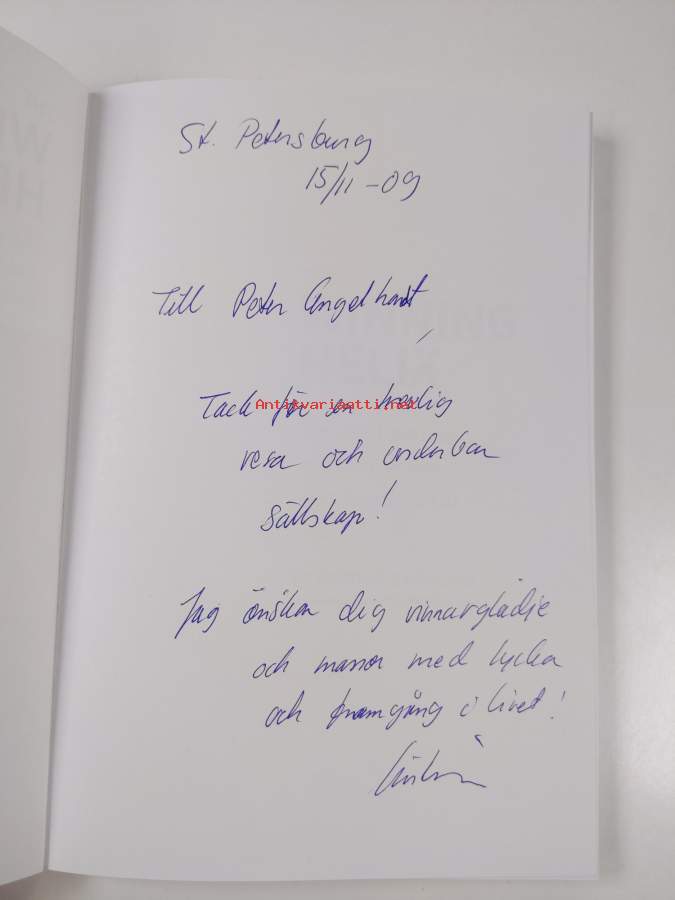 St. Petersburg
15/11 -09
Till Peter Angelhardt
Tack för en härlig
Antikvariaatti.net
resa och underbar
sällskap!
Jag önskar dig vinnarglädje
och massor med lycka
och framgång i livet!